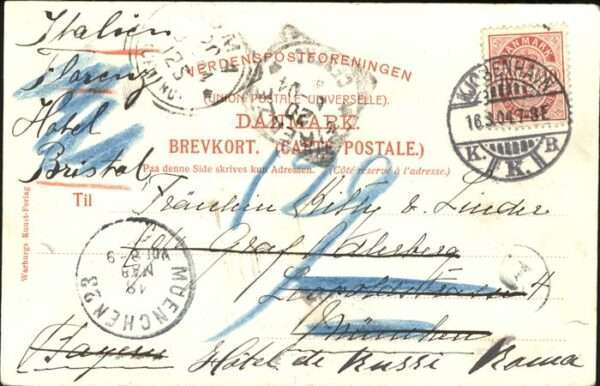 Italien
Florenz
Hotel
Bristol
VERDENSPOSTFORENINGEN
(UNION POSTALE UNIVERSELLE).
DANMARK.
BREVKORT. (CARTE POSTALE.)
(Paa denne Side skrives kun Adressen. (Côté réservé à l'adresse.)
DANMARK
KJØBENHAVN
16.3.04.7-8E
K. K. B.
Til
Fräulein Kitty v. Linder
Graf
Leopoldstrasse 4
München
Bayern
Hôtel de Russi Roma
MUENCHEN 23
18
MAR
Warburgs Kunst-Forlag